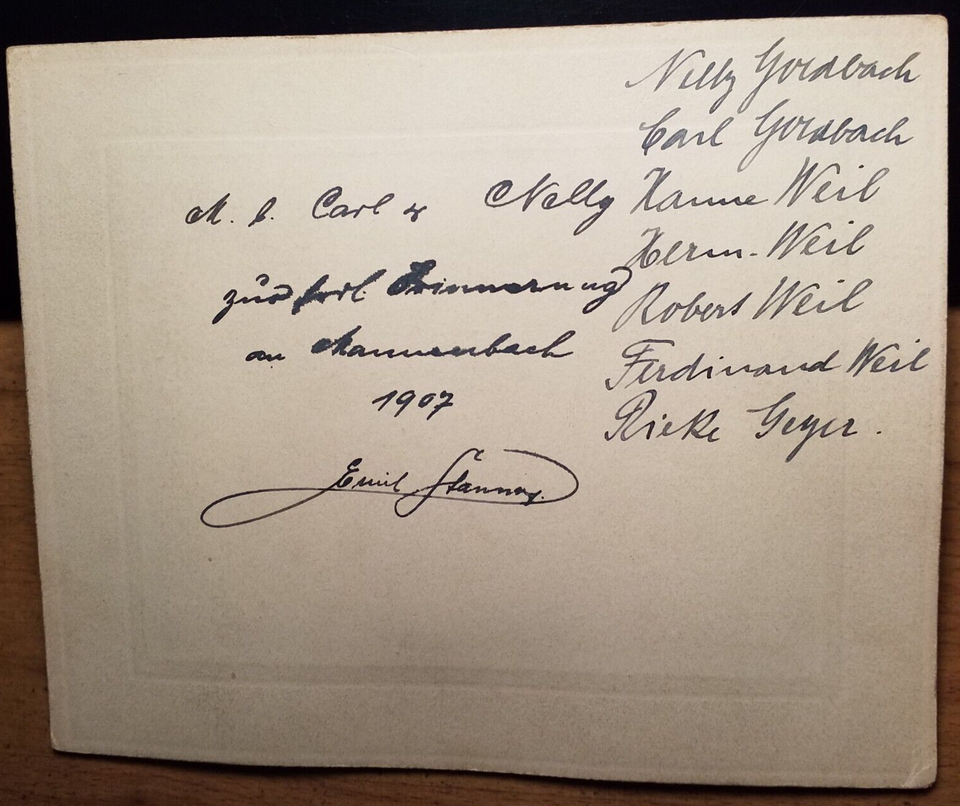 M. l. Carl & Nelly
zur frdl. Erinnerung
an Mannenbach
1907
Emil
Nelly Goldbach
Carl Goldbach
Hanne Weil
Herm. Weil
Robert Weil
Ferdinand Weil
Rieke Geyer.